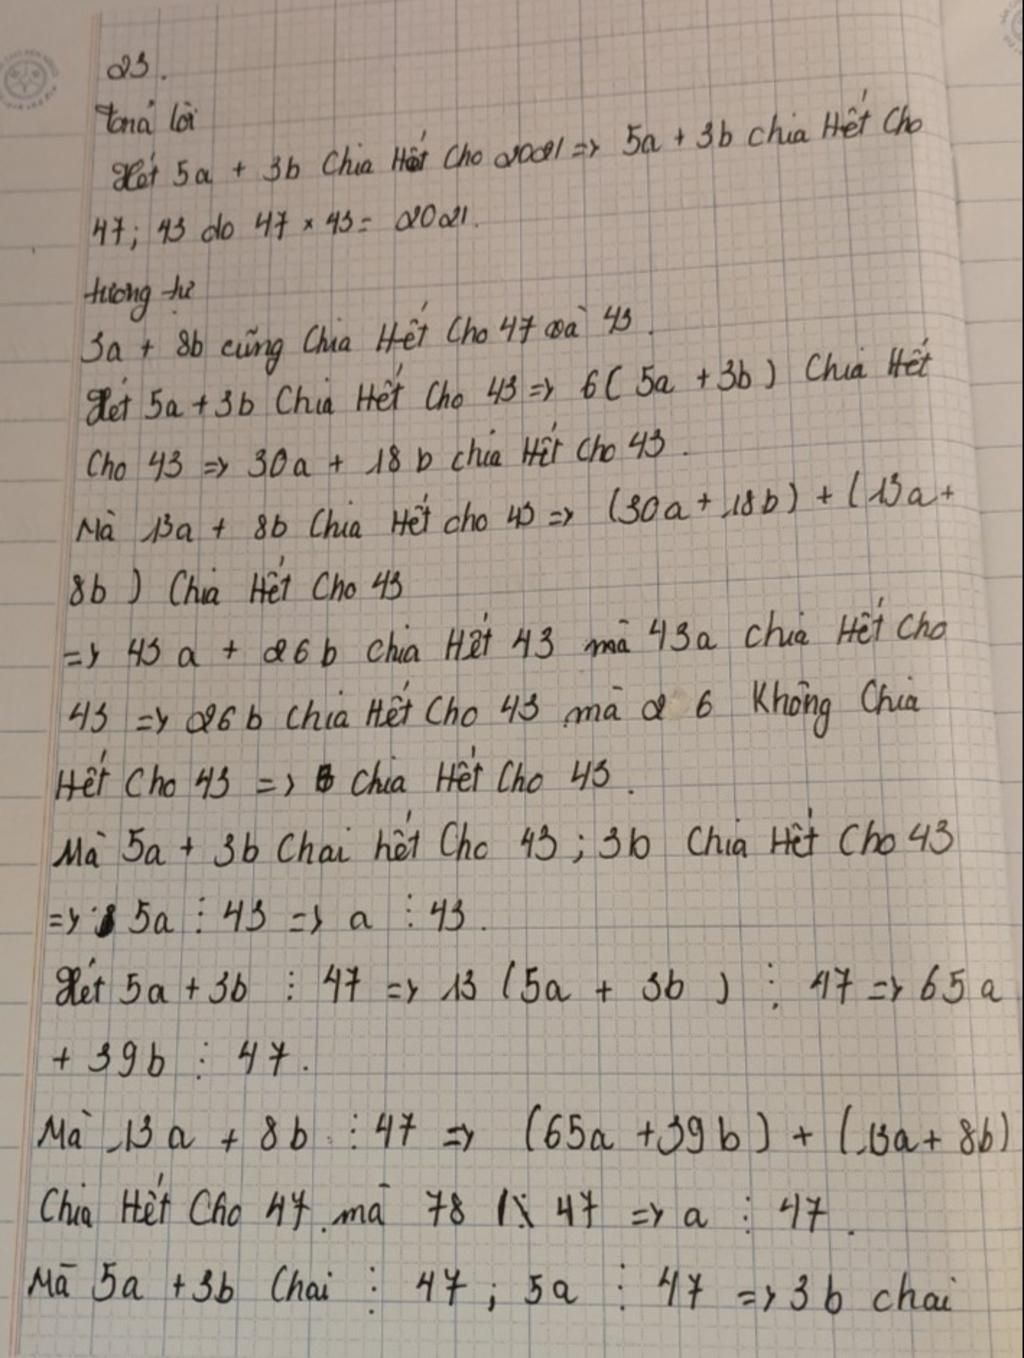 23.
trả lời
Xét 5a + 3b Chia Hết Cho 2021 => 5a + 3b chia Hết Cho
47; 43 do 47 × 43 = 2021.
tương tự
3a + 8b cũng Chia Hết Cho 47 và 43.
Xét 5a + 3b Chia Hết Cho 43 => 6( 5a + 3b ) Chia Hết
Cho 43 => 30a + 18b chia Hết Cho 43.
Mà 13a + 8b Chia Hết cho 43 => (30a + 18b) + (13a +
8b ) Chia Hết Cho 43
=> 43a + 26b chia Hết 43 mà 43a chia Hết Cho
43 => 26b chia Hết Cho 43 mà 26 Không Chia
Hết Cho 43 => b chia Hết Cho 43.
Mà 5a + 3b Chai hết Cho 43 ; 3b Chia Hết Cho 43
=> 5a ⋮ 43 => a ⋮ 43.
Xét 5a + 3b ⋮ 47 => 13 (5a + 3b ) ⋮ 47 => 65a
+ 39b ⋮ 47.
Mà 13a + 8b ⋮ 47 => (65a + 39b) + (13a + 8b)
Chia Hết Cho 47 mà 78 47 => a ⋮ 47.
Mà 5a + 3b Chai ⋮ 47 ; 5a ⋮ 47 => 3b chai